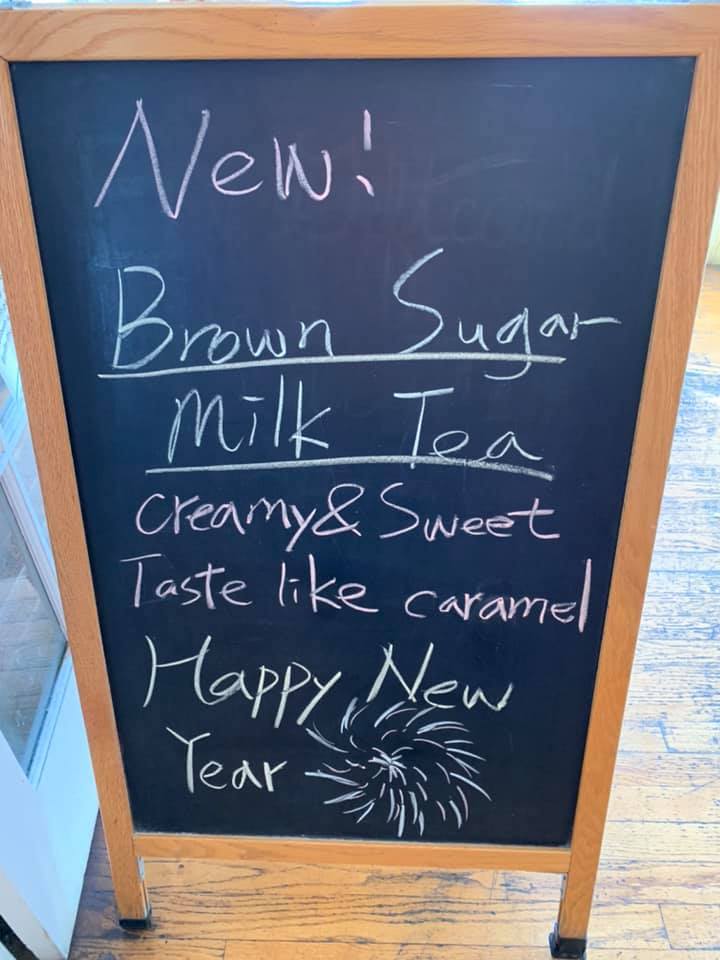 New!
Brown Sugar
Milk Tea
Creamy & Sweet
Taste like caramel
Happy New
Year